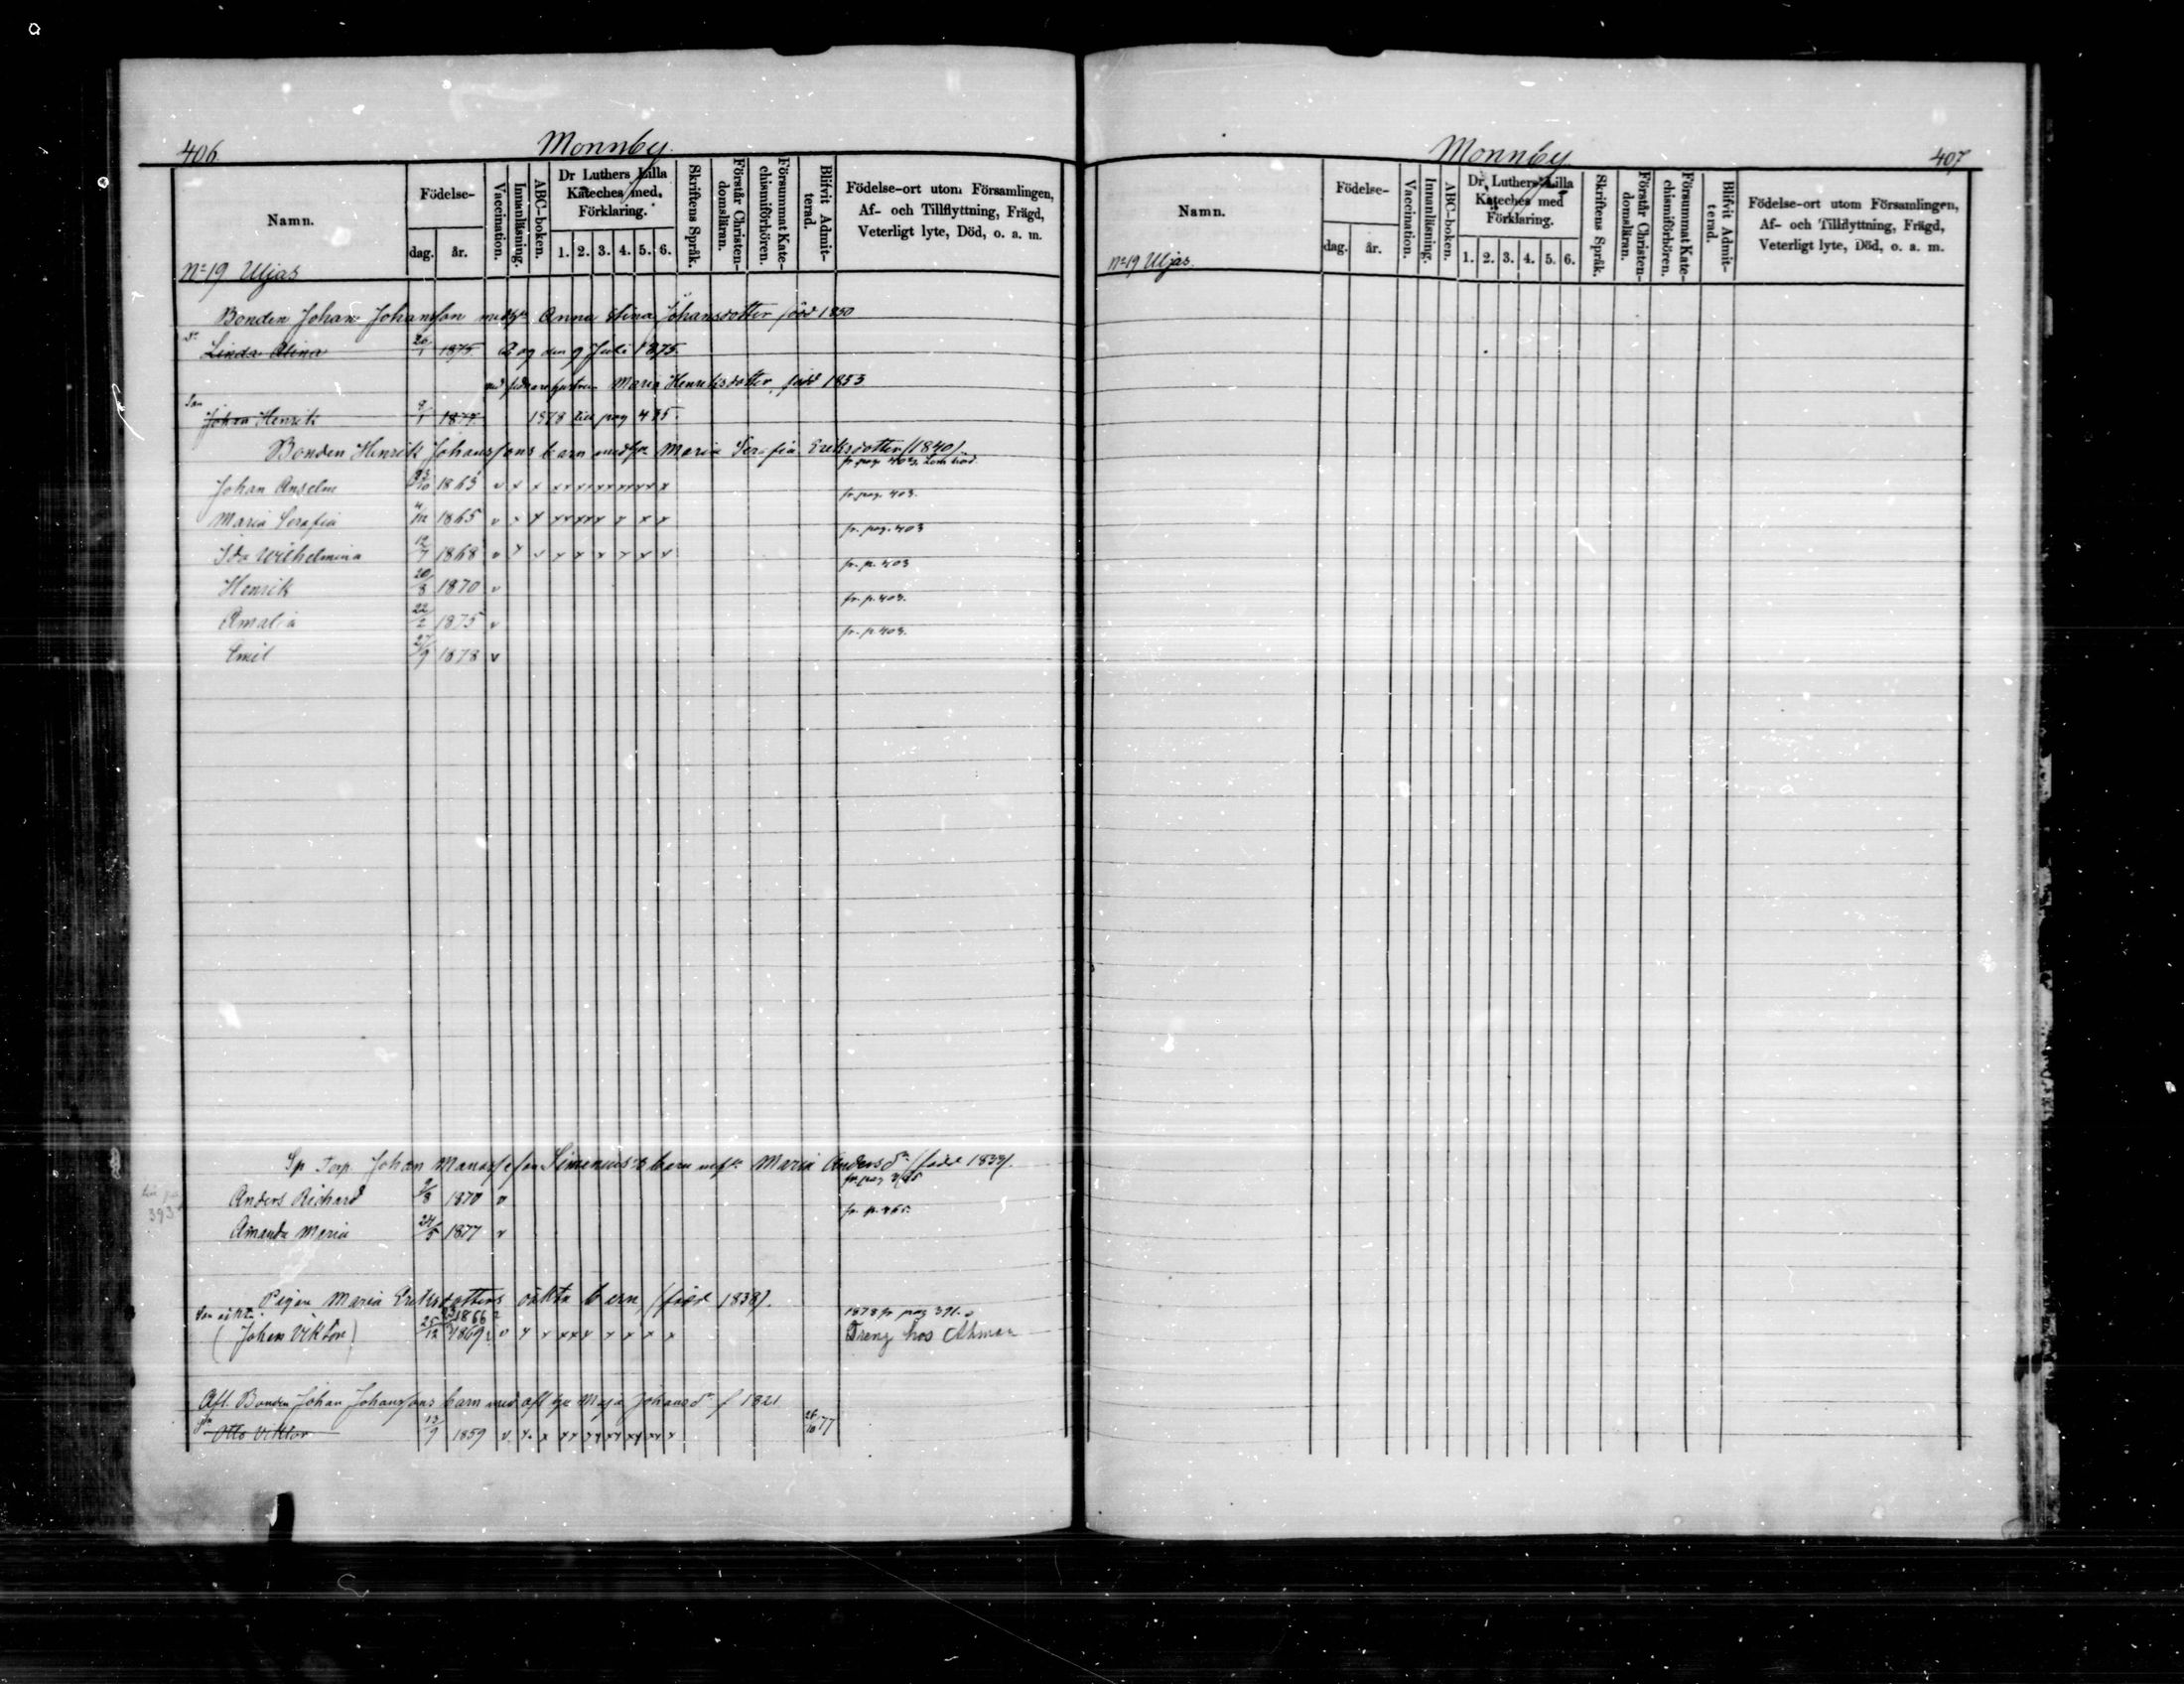 406.
Monnby.
Namn.
Födelse-
dag. år.
Vaccination.
Innanläsning.
ABC-boken.
Dr Luthers Lilla Kateches med. Förklaring.
1. 2. 3. 4. 5. 6.
Skriftens Språk.
Förstår Christen-domsläran.
Försummat Kate-chismiförhören.
Blifvit Admit-terad.
Födelse-ort utom Församlingen,
Af- och Tillflyttning, Frägd,
Veterligt lyte, Död, o. a. m.
No 19 Uljas
Bonden Johan Johansson med hu Anna Stina Johansdotter född 1850
Dr Linda Alina 26/1 1875 den 9 Juli 1875.
Maria Henriksdotter, född 1853
Son
Johan Henrik 8/1 1877 1878 till pag 415.
Bonden Henrik Johanssons barn med hu Maria Serafia Eriksdotter (1840).
Johan Anselm 23/10 1863 v x x x x x x x x x x x x x
fr. pag. 403.
Maria Serafia 4/12 1865 v x x x x x x x x x x
fr. pag. 403
Ida Wilhelmina 12/7 1868 v x x x x x x x x
fr. p. 403
Henrik 20/8 1870 v
fr. p. 403.
Amalia 22/2 1875 v
fr. p. 403.
Emil 27/9 1878 v
Sp Torp. Johan Manassesson Simenius's barn m hu Maria Anders dr (född 1833).
393
Anders Richard 9/8 1870 v
fr. p. 465.
Amanda Maria 24/5 1877 v
Pigan Maria Eriksdotters oäkta barn (född 1838).
Son oäkta 1866 1878 fr pag 391.
(Johan Viktor) 25/12 1869 v x x x x x x x x x Dreng hos Åhman
Afl. Bonden Johan Johanssons barn med afl hu Maja Johansdr f 1821
Otto Viktor 13/9 1859 v x x x x x x x x x x x x x 26/10 77
Monnby
407
Namn.
Födelse-
dag. år.
Vaccination.
Innanläsning.
ABC-boken.
Dr. Luthers Lilla Kateches med Förklaring.
1. 2. 3. 4. 5. 6.
Skriftens Språk.
Förstår Christen-domsläran.
Försummat Kate-chismiförhören.
Blifvit Admit-terad.
Födelse-ort utom Församlingen,
Af- och Tillflyttning, Frägd,
Veterligt lyte, Död, o. a. m.
No 19 Uljas.